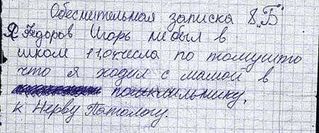 Обеснительная записка 8„Б"
Я Федоров Игорь не был в
школ 11 отчесла по томушто
что я ходил с мамой в
к Нерву Потологу.